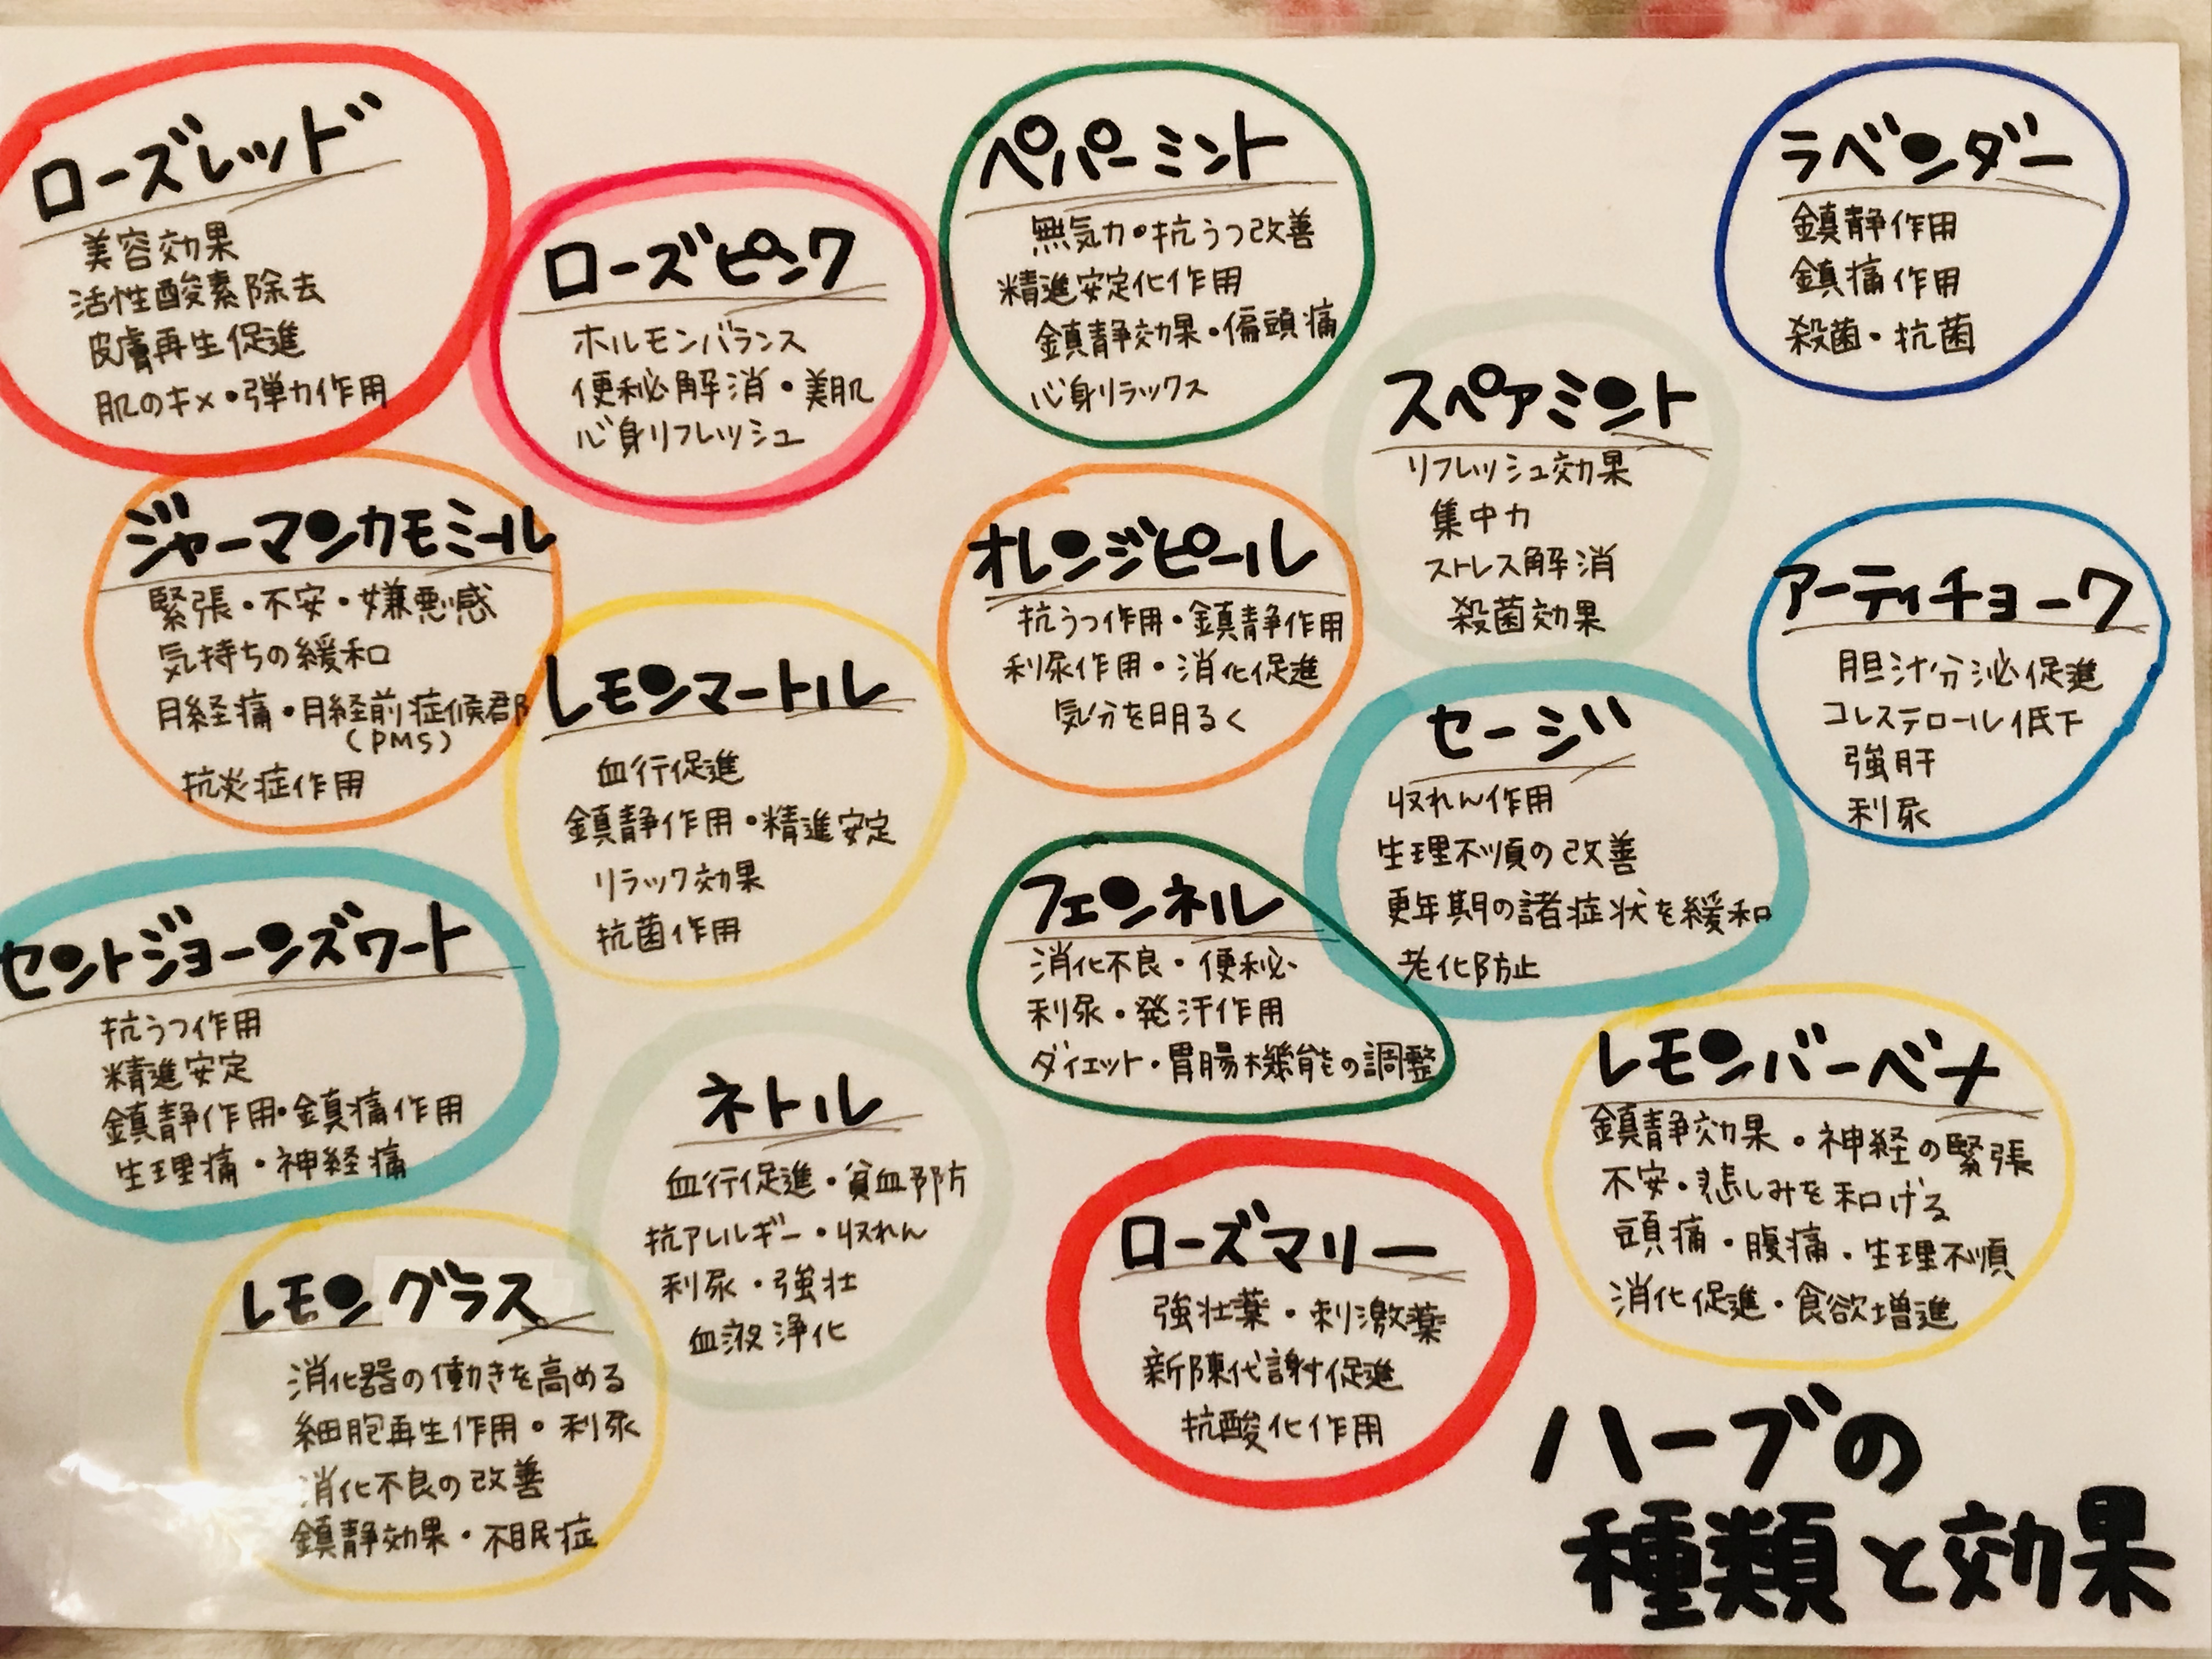 ローズレッド
美容効果
活性酸素除去
皮膚再生促進
肌のキメ・弾力作用
ローズピンク
ホルモンバランス
便秘解消・美肌
心身リフレッシュ
ペパーミント
無気力・抗うつ改善
精進安定化作用
鎮静効果・偏頭痛
心身リラックス
ラベンダー
鎮静作用
鎮痛作用
殺菌・抗菌
スペアミント
リフレッシュ効果
集中力
ストレス解消
殺菌効果
ジャーマンカモミール
緊張・不安・嫌悪感
気持ちの緩和
月経痛・月経前症候郡
(PMS)
抗炎症作用
レモンマートル
血行促進
鎮静作用・精進安定
リラック効果
抗菌作用
オレンジピール
抗うつ作用・鎮静作用
利尿作用・消化促進
気分を明るく
アーティチョーク
胆汁分泌促進
コレステロール低下
強肝
利尿
セージ
収れん作用
生理不順の改善
更年期の諸症状を緩和
老化防止
セントジョーンズワート
抗うつ作用
精進安定
鎮静作用・鎮痛作用
生理痛・神経痛
フェンネル
消化不良・便秘
利尿・発汗作用
ダイエット・胃腸機能の調整
ネトル
血行促進・貧血予防
抗アレルギー・収れん
利尿・強壮
血液浄化
レモンバーベナ
鎮静効果・神経の緊張
不安・悲しみを和げる
頭痛・腹痛・生理不順
消化促進・食欲増進
レモングラス
消化器の働きを高める
細胞再生作用・利尿
消化不良の改善
鎮静効果・不眠症
ローズマリー
強壮薬・刺激薬
新陳代謝促進
抗酸化作用
ハーブの
種類と効果